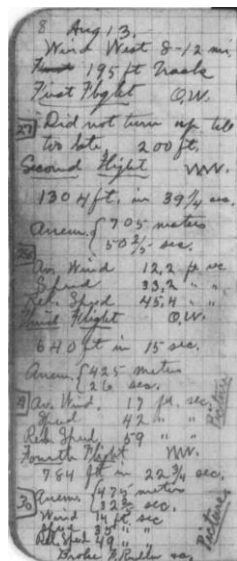 8 Aug 13.
Wind West 8-12 mi.
195 ft Track
First Flight O.W.
27 Did not turn up till
too late, 200 ft.
Second Flight W.W.
1304 ft. in 39 1/4 sec.
Anem. { 705 meters
50 2/5 sec.
28
Av. Wind 12,2 ft sec
Speed 33,2 " "
Rel. Speed 45,4 " "
Third Flight O.W.
640 ft in 15 sec.
Anem. { 425 meters
26 sec.
29 Av. Wind. 17 ft. sec.
Speed 42 " "
Rel. Speed, 59 " "
Picture
Fourth Flight W.W.
784 ft in 22 3/4 sec.
30 Anem. { 475 meters
32 2/5 sec.
Wind 14 ft. sec
Speed 35 " "
Rel. Speed 49 "
Picture.
Broke